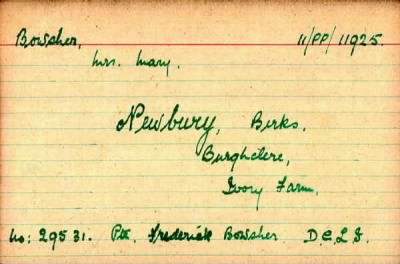 Bowsher, 11/PP/11925.
Mrs. Mary.
Newbury, Berks.
Burghclere,
Ivory Farm.
No: 29531. Pte. Frederick Bowsher. D.C.L.I.